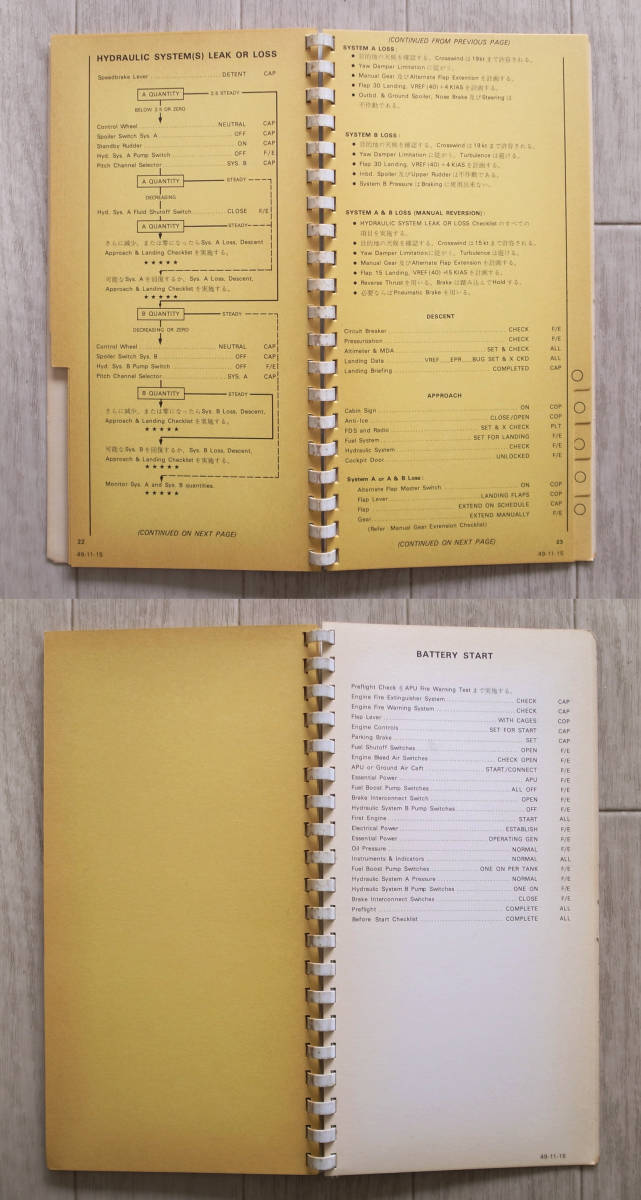 HYDRAULIC SYSTEM(S) LEAK OR LOSS
Speedbrake Lever DETENT CAP
A QUANTITY STEADY
BELOW OR ZERO
Control Wheel NEUTRAL CAP
Spoiler Switch Sys. A OFF CAP
Standby Rudder ON CAP
Hyd. Sys. A Pump Switch OFF F/E
Pitch Channel Selector SYS. B CAP
A QUANTITY STEADY
DECREASING
Hyd. Sys. A Fluid Shutoff Switch CLOSE F/E
A QUANTITY STEADY
さらに減少、または零になったら Sys. A Loss, Descent
Approach & Landing Checklistを実施する。
★★★★★
可能なSys. Aを回復するか、Sys. A Loss, Descent,
Approach & Landing Checklistを実施する。
★★★★★
B QUANTITY STEADY
DECREASING OR ZERO
Control Wheel NEUTRAL CAP
Spoiler Switch Sys. B OFF CAP
Hyd. Sys. B Pump Switch OFF F/E
Pitch Channel Selector SYS. A CAP
B QUANTITY STEADY
さらに減少、または零になったら Sys. B Loss, Descent,
Approach & Landing Checklistを実施する。
★★★★★
可能な Sys. Bを回復するか、Sys. B Loss, Descent,
Approach & Landing Checklistを実施する。
★★★★★
Monitor Sys. A and Sys. B quantities.
★★★★★
(CONTINUED ON NEXT PAGE)
22
49-11-15
(CONTINUED FROM PREVIOUS PAGE)
SYSTEM A LOSS:
● 目的地の天候を確認する。Crosswind は 19kt まで許容される。
● Yaw Damper Limitation に従がう。
● Manual Gear 及び Alternate Flap Extention を計画する。
● Flap 30 Landing, VREF (40) + 4 KIAS を計画する。
● Outbd. & Ground Spoiler, Nose Brake 及び Steering は
不作動である。
SYSTEM B LOSS:
● 目的地の天候を確認する。Crosswind は 19 kt まで許容される。
● Yaw Damper Limitation に従がう。Turbulence は避ける。
● Flap 30 Landing, VREF (40) + 4 KIAS を計画する。
● Inbd. Spoiler 及び Upper Rudder は不作動である。
● System B Pressure は Braking に使用出来ない。
SYSTEM A & B LOSS (MANUAL REVERSION):
● HYDRAULIC SYSTEM LEAK OR LOSS Checklist のすべての
項目を実施する。
● 目的地の天候を確認する。Crosswind は 15 kt まで許容される。
● Yaw Damper Limitation に従がい、Turbulence は避ける。
● Manual Gear 及び Alternate Flap Extension を計画する。
● Flap 15 Landing, VREF (40) +15 KIAS を計画する。
● Reverse Thrust を用いる。Brake は踏み込んで Hold する。
● 必要ならば Pneumatic Brake を用いる。
DESCENT
Circuit Breaker CHECK F/E
Pressurization CHECK F/E
Altimeter & MDA SET & CHECK ALL
Landing Data VREF EPR BUG SET & X CKD ALL
Landing Briefing COMPLETED CAP
APPROACH
Cabin Sign ON COP
Anti-Ice CLOSE/OPEN COP
FDS and Radio SET & X CHECK PLT
Fuel System SET FOR LANDING F/E
Hydraulic System CHECK F/E
Cockpit Door UNLOCKED F/E
System A or A & B Loss:
Alternate Flap Master Switch ON COP
Flap Lever LANDING FLAPS COP
Flap EXTEND ON SCHEDULE CAP
Gear EXTEND MANUALLY F/E
(Refer Manual Gear Extension Checklist)
(CONTINUED ON NEXT PAGE)
23
49-11-15
BATTERY START
Preflight Check を APU Fire Warning Test まで実施する。
Engine Fire Extinguisher System CHECK CAP
Engine Fire Warning System CHECK CAP
Flap Lever WITH CAGES COP
Engine Controls SET FOR START CAP
Parking Brake SET CAP
Fuel Shutoff Switches OPEN F/E
Engine Bleed Air Switches CHECK OPEN F/E
APU or Ground Air Caft START/CONNECT F/E
Essential Power APU F/E
Fuel Boost Pump Switches ALL OFF F/E
Brake Interconnect Switch OPEN F/E
Hydraulic System B Pump Switches OFF F/E
First Engine START ALL
Electrical Power ESTABLISH F/E
Essential Power OPERATING GEN F/E
Oil Pressure NORMAL F/E
Instruments & Indicators NORMAL ALL
Fuel Boost Pump Switches ONE ON PER TANK F/E
Hydraulic System A Pressure NORMAL F/E
Hydraulic System B Pump Switches ONE ON F/E
Brake Interconnect Switches CLOSE F/E
Preflight COMPLETE ALL
Before Start Checklist COMPLETE ALL
49-11-15